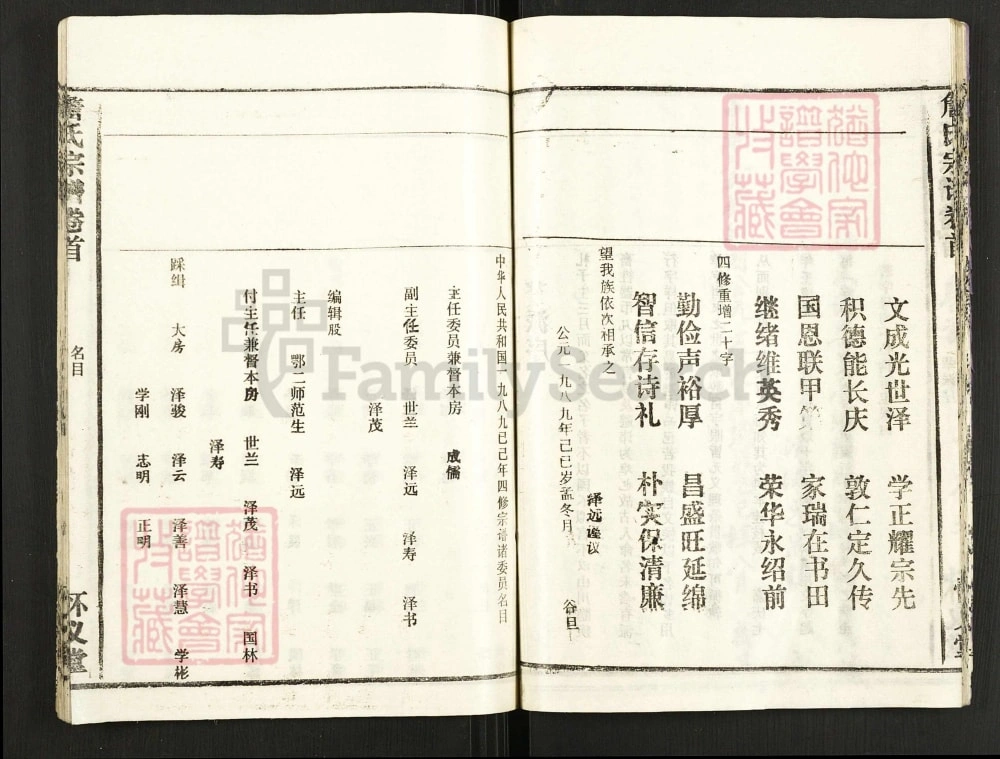 詹氏宗谱卷首
文成光世泽 学正耀宗先
积德能长庆 敦仁定久传
国恩联甲第 家瑞在书田
继绪维英秀 荣华永绍前
四修重增二十字
勤俭声裕厚 昌盛旺延绵
智信存诗礼 朴实保清廉
望我族依次相承之
泽远谨议
公元一九八九年己巳岁孟冬月 谷旦
中华人民共和国一九八九己巳年四修宗谱诸委员名目
主任委员兼督本房 成儒
副主任委员 世兰 泽远 泽寿 泽书
泽茂
编辑股
主任 鄂二师范生 泽远
付主任兼督本房 世兰 泽茂 泽书 国林
泽寿
踩缉 大房 泽骏 泽云 泽善 泽慧 学彬
学刚 志明 正明
詹氏宗谱卷首
名目
怀义堂
猶他家譜學會收藏
猶他家譜學會收藏
FamilySearch